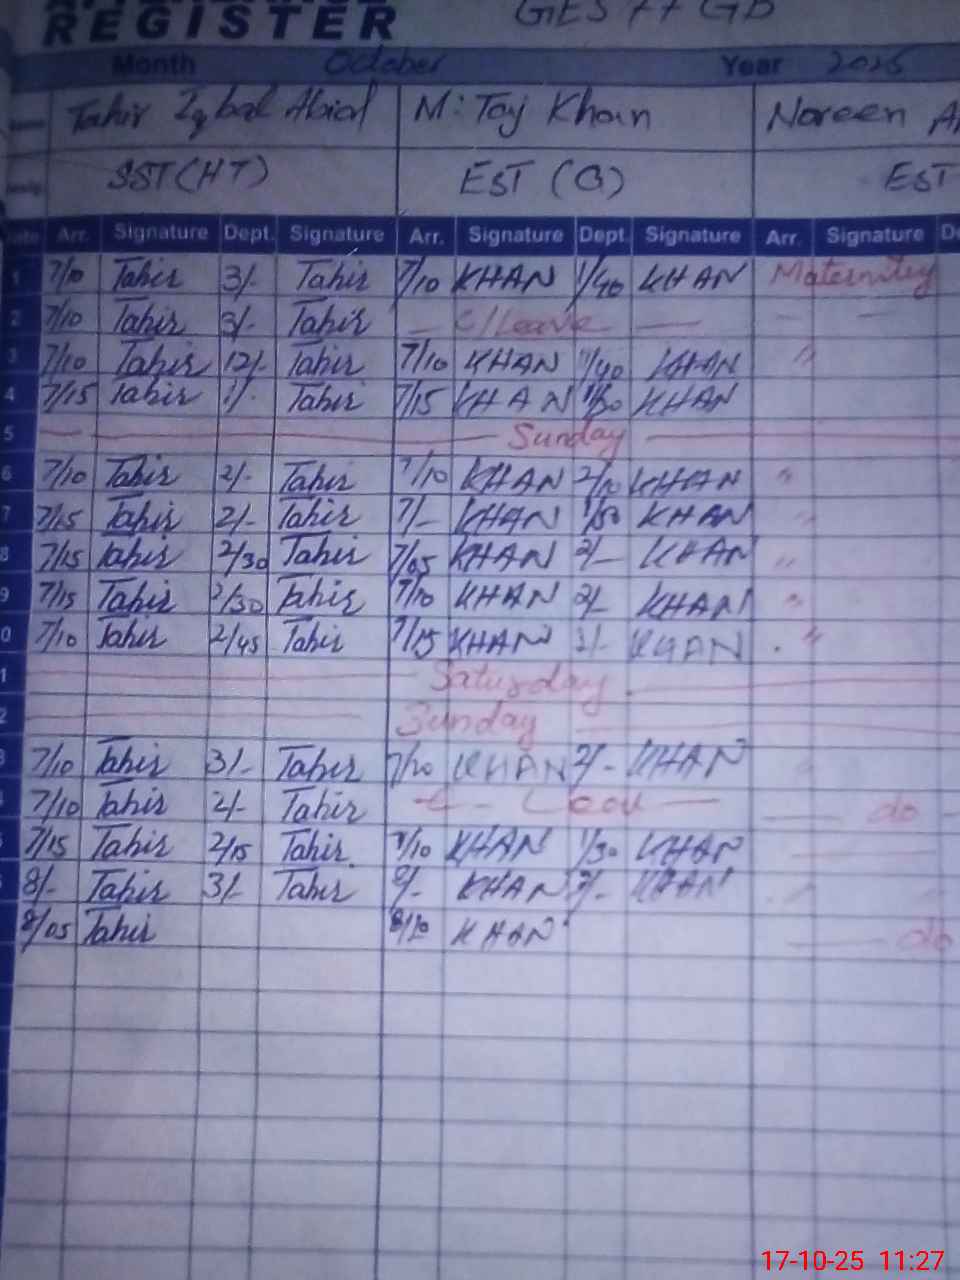 REGISTER GES 77 GD
Month October Year 2025
Tahir Iqbal Abid M: Taj Khan Noreen
SST (HT) EST (G) EST
Arr. Signature Dept. Signature Arr. Signature Dept. Signature Arr. Signature
1 7/10 Tahir 3/- Tahir 7/10 KHAN 1/40 KHAN Maternity
2 7/10 Tahir 3/- Tahir — C/Leave —
3 7/10 Tahir 12/- Tahir 7/10 KHAN 11/40 KHAN "
4 7/15 Tahir 1/- Tahir 7/15 KHAN KHAN
5 — Sunday —
6 7/10 Tahir 2/- Tahir 7/10 KHAN 2/10 KHAN "
7 7/15 Tahir 2/- Tahir 7/- KHAN 1/50 KHAN "
8 7/15 Tahir 2/30 Tahir 7/05 KHAN 2/- KHAN "
9 7/15 Tahir 2/30 Tahir 7/10 KHAN 2/- KHAN "
0 7/10 Tahir 2/45 Tahir 7/15 KHAN 3/- KHAN "
1 — Saturday —
2 — Sunday —
3 7/10 Tahir 3/- Tahir 7/10 KHAN 2/- KHAN
7/10 Tahir 2/- Tahir — do
7/15 Tahir 2/15 Tahir 7/10 KHAN 1/30 KHAN
8/- Tahir 3/- Tahir 8/- KHAN 2/- KHAN
8/05 Tahir 8/10 KHAN — do
17-10-25 11:27